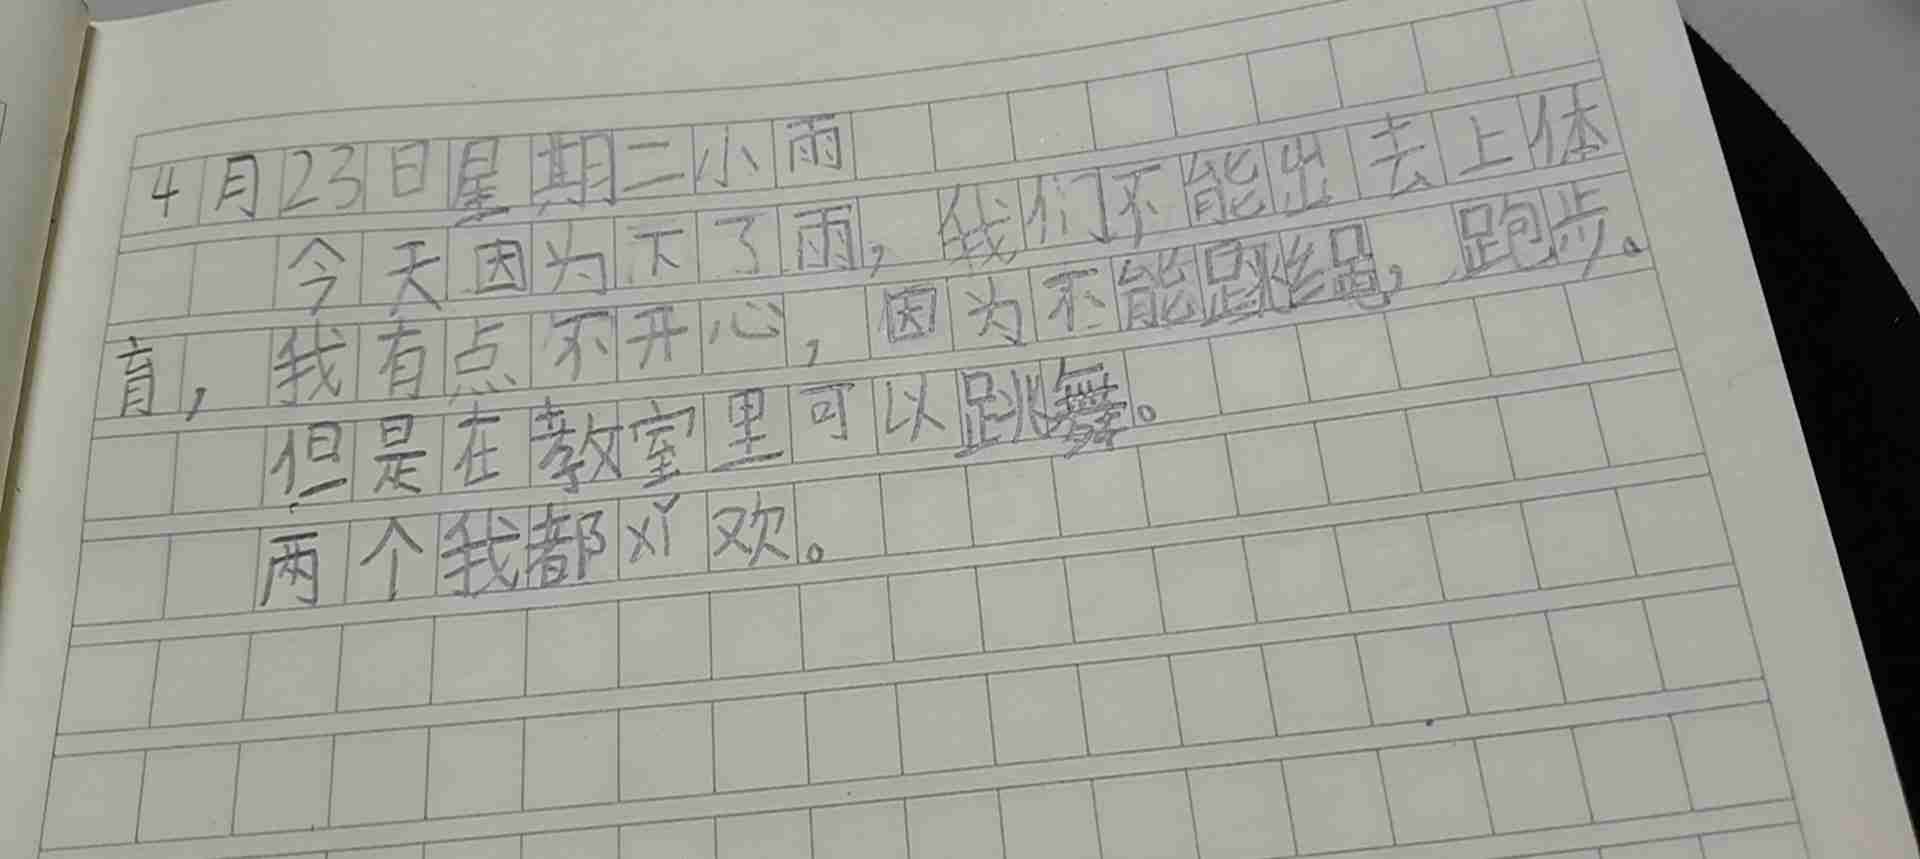 4月23日星期二小雨
今天因为下了雨，我们不能出去上体
育，我有点不开心，因为不能跳绳，跑步。
但是在教室里可以跳舞。
两个我都xǐ欢。